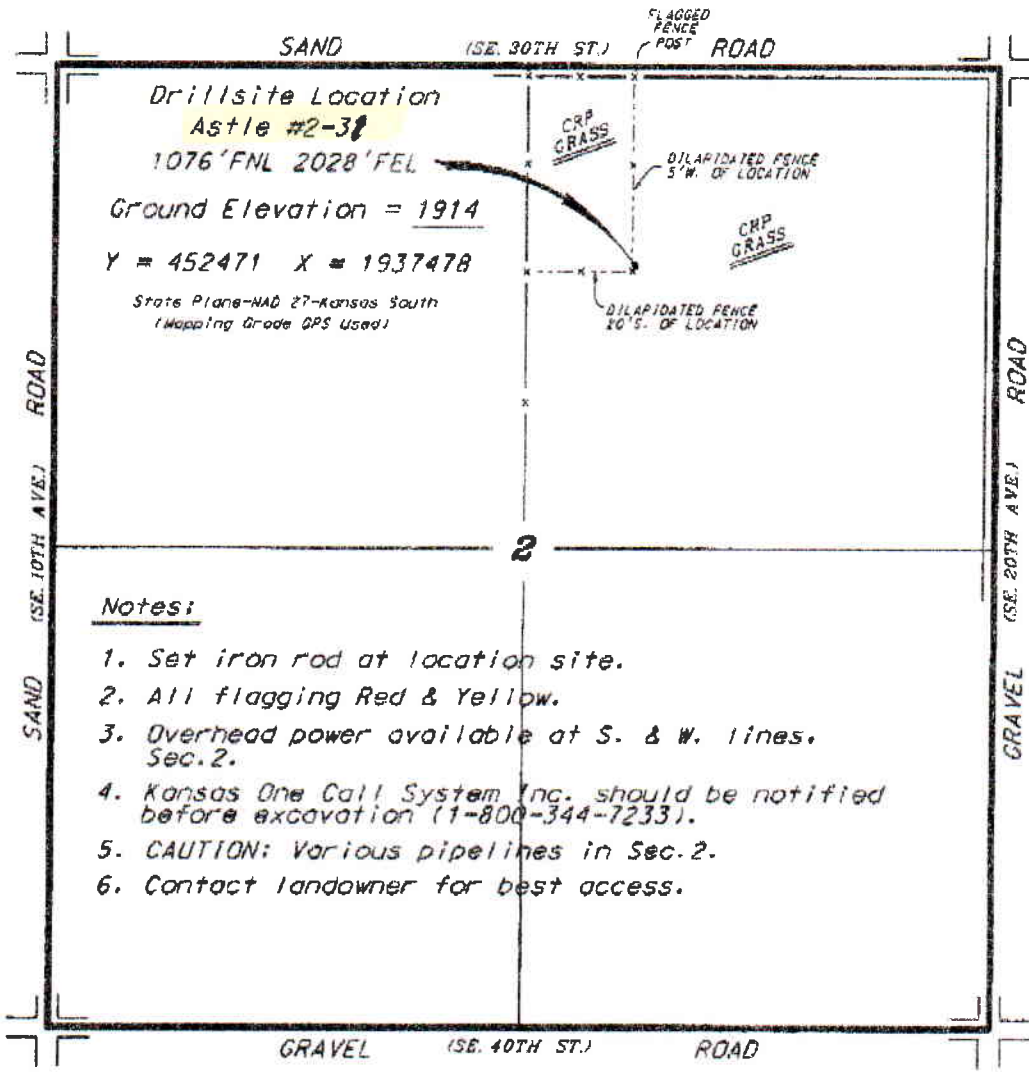 FLAGGED
FENCE
POST
SAND (SE. 30TH ST.) ROAD
Drillsite Location
Astle #2-31
1076'FNL 2028'FEL
Ground Elevation = 1914
Y = 452471 X = 1937478
State Plane-NAD 27-Kansas South
(Mapping Grade GPS Used)
CRP
GRASS
DILAPIDATED FENCE
5'W. OF LOCATION
CRP
GRASS
DILAPIDATED FENCE
20'S. OF LOCATION
SAND (SE. 10TH AVE.) ROAD
GRAVEL (SE. 20TH AVE.) ROAD
2
Notes:
1. Set iron rod at location site.
2. All flagging Red & Yellow.
3. Overhead power available at S. & W. lines.
Sec.2.
4. Kansas One Call System Inc. should be notified
before excavation (1-800-344-7233).
5. CAUTION: Various pipelines in Sec.2.
6. Contact landowner for best access.
GRAVEL (SE. 40TH ST.) ROAD